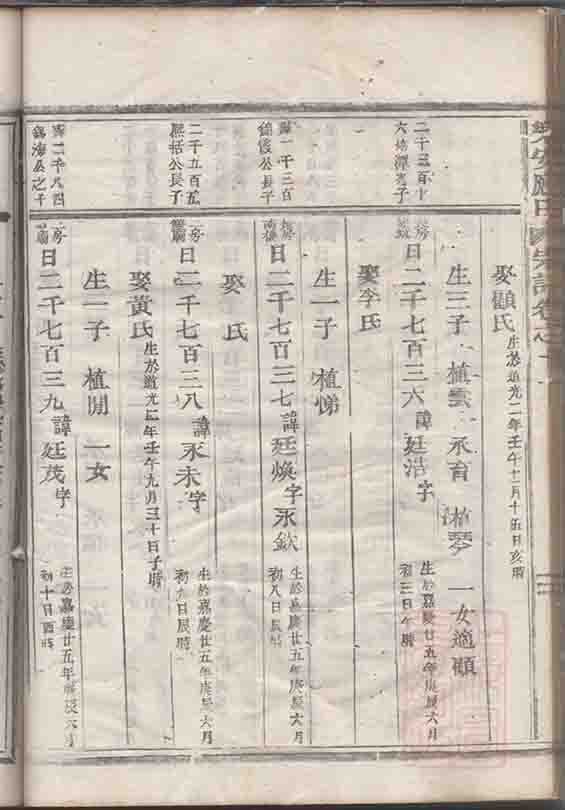 娶顧氏 生於道光二年壬午十二月十五日亥時
生三子 植雲 永育 澍琴 一女適顧
二千三百十
六 子
房
日二千七百三六諱廷浩字 生於嘉慶廿五年庚辰六月
初三日午時
娶李氏
生一子 植悌
一千三百
錦霞公長子
日二千七百三七諱廷煥字永欽 生於嘉慶廿五年庚辰六月
初八日辰時
娶 氏
二千五百五
公長子
房
日二千七百三八諱永未字 生於嘉慶廿五年庚辰六月
初九日辰時
娶黃氏 生於道光二年壬午九月三十日子時
生一子 植開 一女
二千八四
錦海公之子
房
日二千七百三九諱廷茂字 生於嘉慶廿五年庚辰六月
初十日酉時